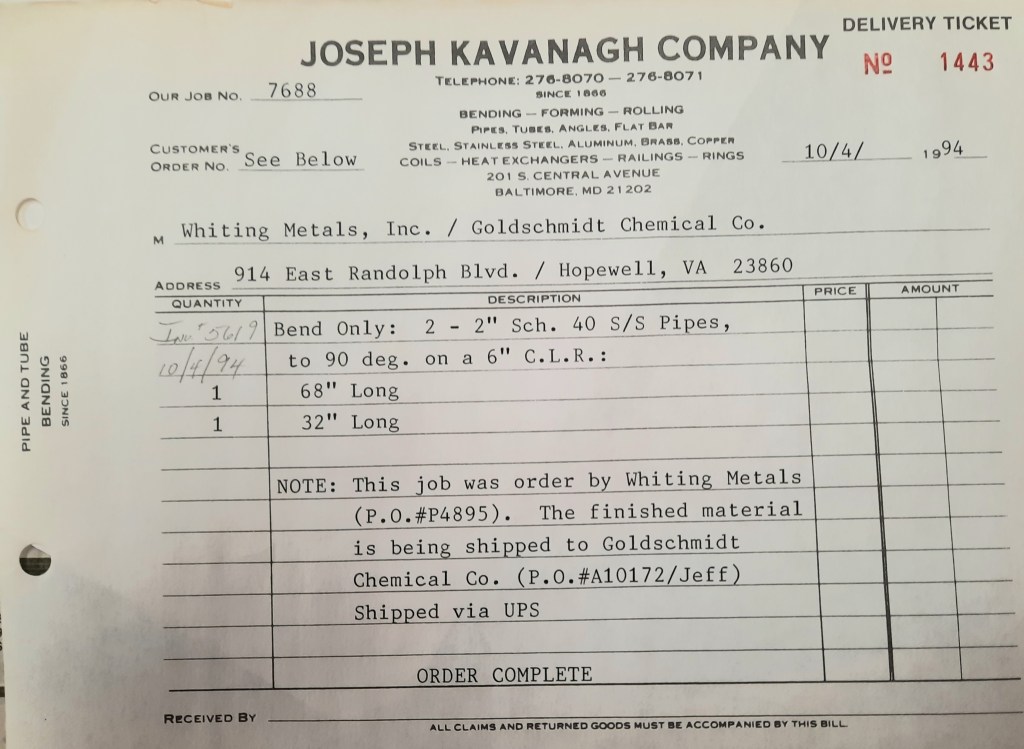 DELIVERY TICKET
JOSEPH KAVANAGH COMPANY
Nº 1443
TELEPHONE: 276-8070 — 276-8071
SINCE 1866
OUR JOB NO. 7688
BENDING — FORMING — ROLLING
PIPES, TUBES, ANGLES, FLAT BAR
STEEL, STAINLESS STEEL, ALUMINUM, BRASS, COPPER
COILS — HEAT EXCHANGERS — RAILINGS — RINGS
201 S. CENTRAL AVENUE
BALTIMORE, MD 21202
CUSTOMER'S
ORDER NO. See Below
10/4/ 1994
M Whiting Metals, Inc. / Goldschmidt Chemical Co.
ADDRESS 914 East Randolph Blvd. / Hopewell, VA 23860
QUANTITY DESCRIPTION PRICE AMOUNT
Inv # 5619 Bend Only: 2 - 2" Sch. 40 S/S Pipes,
10/4/94 to 90 deg. on a 6" C.L.R.:
1 68" Long
1 32" Long
NOTE: This job was order by Whiting Metals
(P.O.#P4895). The finished material
is being shipped to Goldschmidt
Chemical Co. (P.O.#A10172/Jeff)
Shipped via UPS
ORDER COMPLETE
RECEIVED BY
ALL CLAIMS AND RETURNED GOODS MUST BE ACCOMPANIED BY THIS BILL.
PIPE AND TUBE
BENDING
SINCE 1866